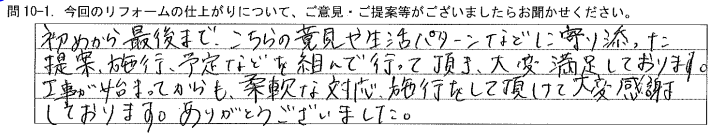 問10-1. 今回のリフォームの仕上がりについて、ご意見・ご提案等がございましたらお聞かせください。
初めから最後まで、こちらの意見や生活パターンなどに寄り添った
提案、施行、予定などを組んで行って頂き、大変満足しております。
工事が始まってからも、柔軟な対応、施行をして頂けて大変感謝
しております。ありがとうございました。